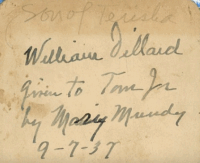 Son of Jerusha
William Dillard
given to Tom Jr
by Mary Mundy
9-7-37